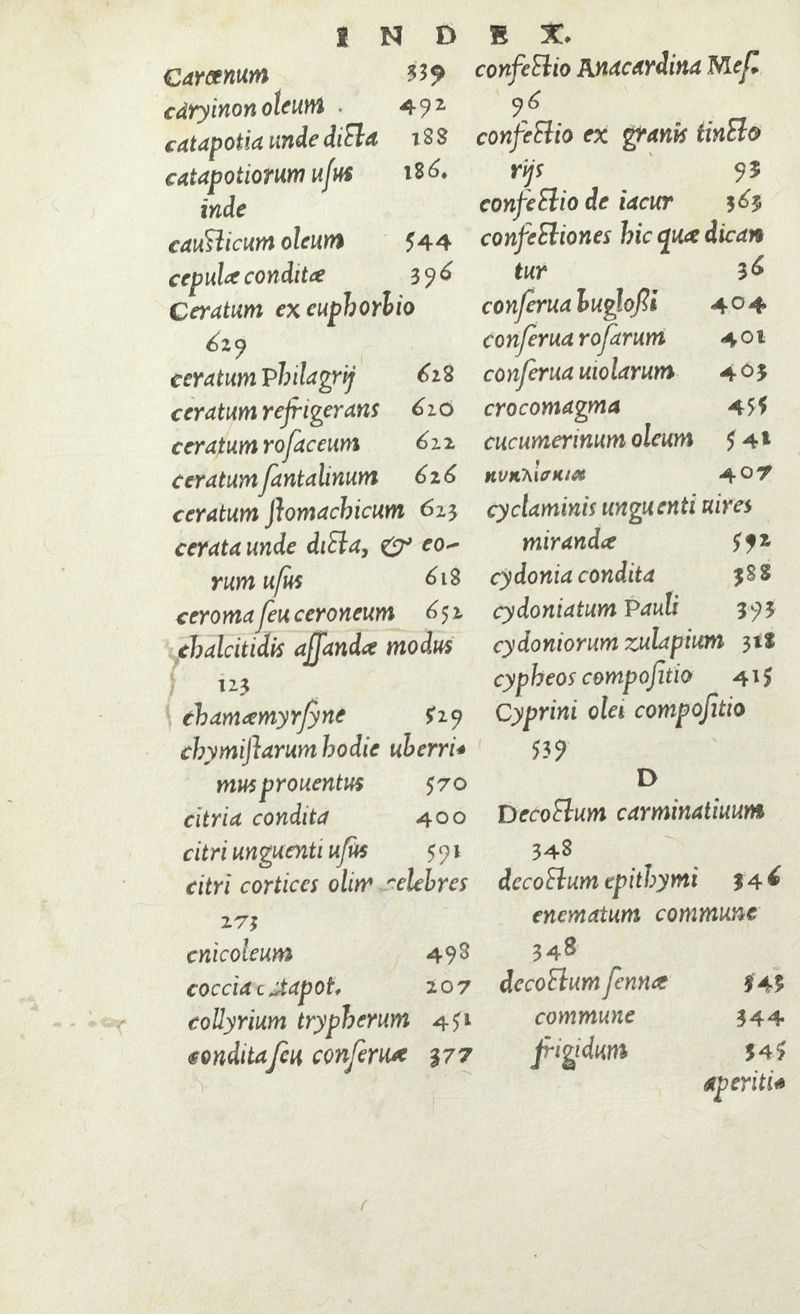 INDEX.
Carœnum 339
caryinon oleum . 492
catapotia unde dicta 188
catapotiorum uſus 186.
inde
causticum oleum 544
cepulæ conditæ 396
Ceratum ex euphorbio
629
ceratum Philagrij 628
ceratum refrigerans 620
ceratum roſaceum 622
ceratum ſantalinum 626
ceratum ſtomachicum 623
cerata unde dicta, & eo-
rum uſus 618
ceroma ſeu ceroneum 652
chalcitidis aſſandæ modus
123
chamæmyrſyne 529
chymiſtarum hodie uberri-
mus prouentus 570
citria condita 400
citri unguenti uſus 591
citri cortices olim celebres
273
cnicoleum 498
coccia catapot. 207
collyrium trypherum 451
condita ſeu conſeruæ 377
confectio Anacardina Meſ.
96
confectio ex granis tincto
rijs 93
confectio de iacur 363
confectiones hic quæ dican
tur 36
conſerua bugloßi 404
conſerua roſarum 401
conſerua uiolarum 403
crocomagma 455
cucumerinum oleum 541
κυκλίσκια 407
cyclaminis unguenti uires
mirandæ 592
cydonia condita 388
cydoniatum Pauli 393
cydoniorum zulapium 318
cypheos compoſitio 415
Cyprini olei compoſitio
539
D
Decoctum carminatiuum
348
decoctum epithymi 346
enematum commune
348
decoctum ſennæ 343
commune 344
frigidum 345
aperiti-